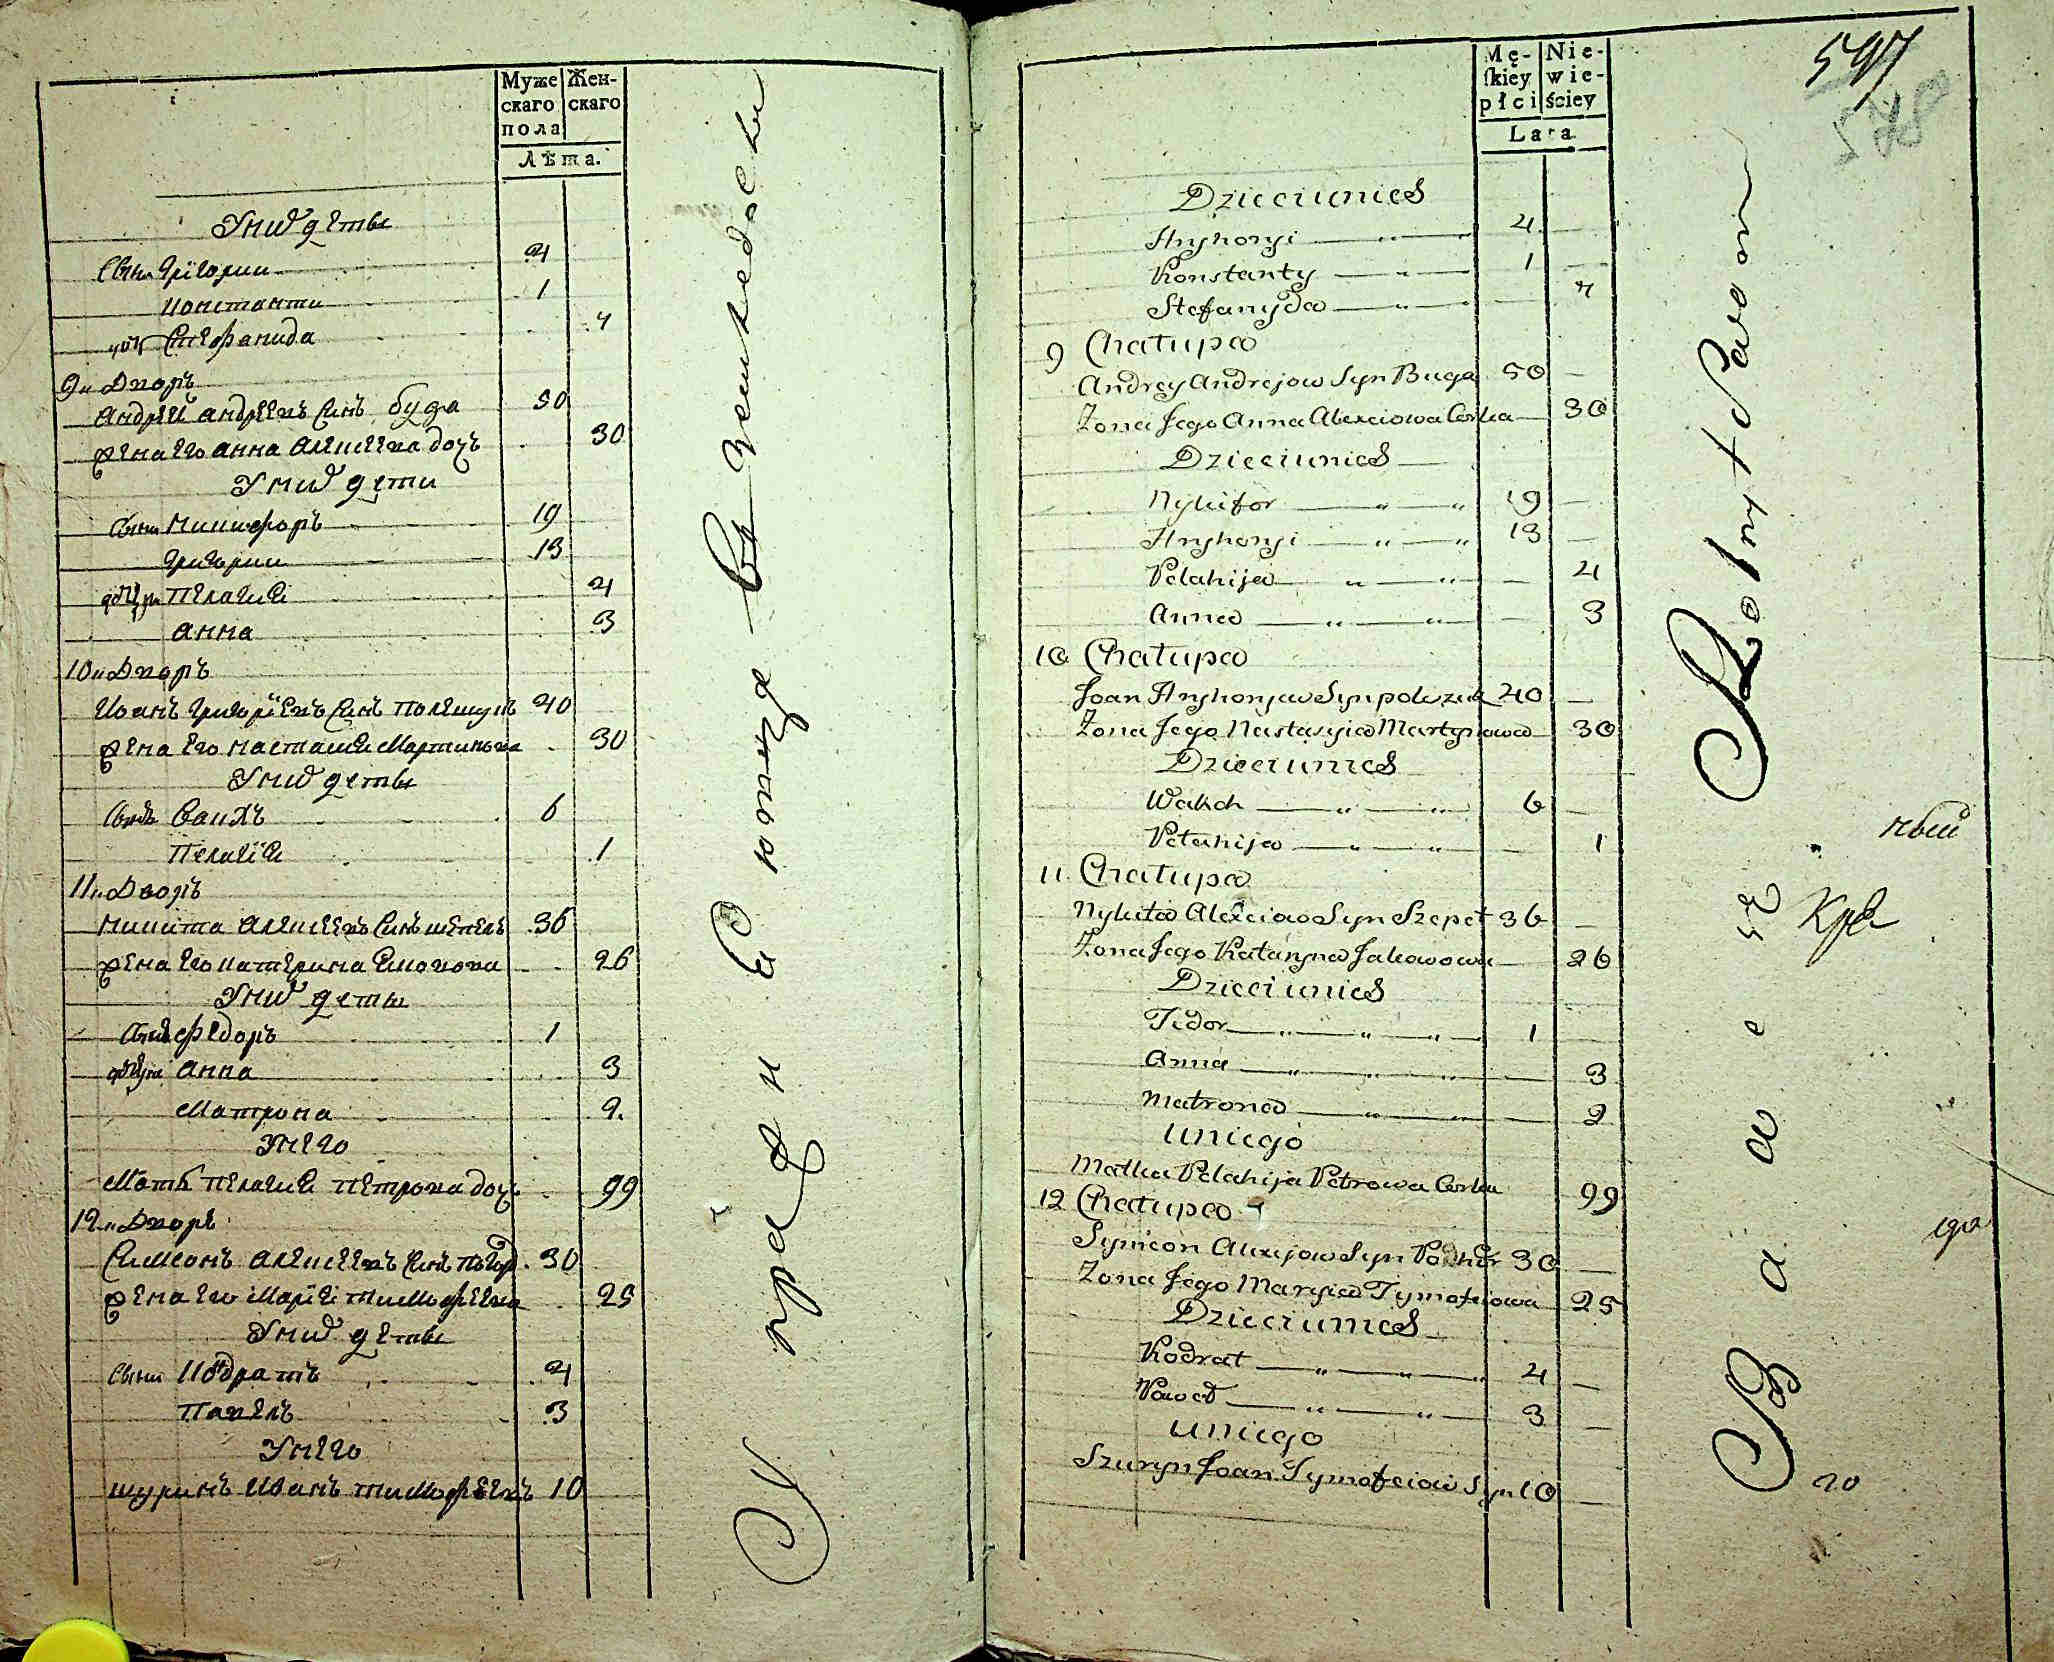 Муже Жен-
скаго скаго
пола
Лѣта.
У них дети
Сыны Григории 4
Константи 1
доч Стефанида 7
9й Дворъ
Андрей Андреевъ Синъ буга 50
жена его Анна Алексеева доч 30
У них дети
Сыны Никифоръ 19
Григории 13
дочери Пелагия 4
Анна 3
10й Дворъ
Иоанъ Григориевъ Синъ Полещукъ 40
жена Его Настасия Мартинова 30
У них дети
Сынъ Ваилъ 6
Пелагия 1
11й Дворъ
Никита Алексеевъ Синъ шепель 36
жена Его Катерина 26
У них дети
Сынъ Федоръ 1
дочери Анна 3
Матрона 2.
У него
Мать Пелагия Петрова доч 99
12й Дворъ
Симеонъ Алексеевъ Синъ 30
жена Его Мария Тимофеева 25
У них дети
Сыны Кодратъ 4
Павелъ 3
У него
шуринъ Иоанъ Тимофеевъ 10
Mę- Nie-
skiey wie-
płci ściey
Lata
597
578
Dzieci unich
Hryhoryi 4
Konstanty 1
Stefanyda 7
9 Chatupa
Andrey Andrejow Syn Buga 50
Zona Jego Anna Alexeiowa Corka 30
Dzieci unich
Nykifor 19
Hryhoryi 13
Pelahija 4
Anna 3
10 Chatupa
Joan Hryhoryow Syn 40
Zona Jego Nastasyia Martynowa 30
Dzieci unich
6
Pelahija 1
11 Chatupa
Nykita Alexeiow Syn Szepel 36
Zona Jego Kataryna 26
Dzieci unich
Fedor 1
Anna 3
Matrona 2
uniego
Matka Pelahija Petrowa Corka 99
12 Chatupa
Symeon Alexejow Syn 30
Zona Jego Maryia Tymofeiowa 25
Dzieci unich
Kodrat 4
Paweł 3
uniego
Szuryn Joan Tymofeiow Syn 10
ный
Кре
20